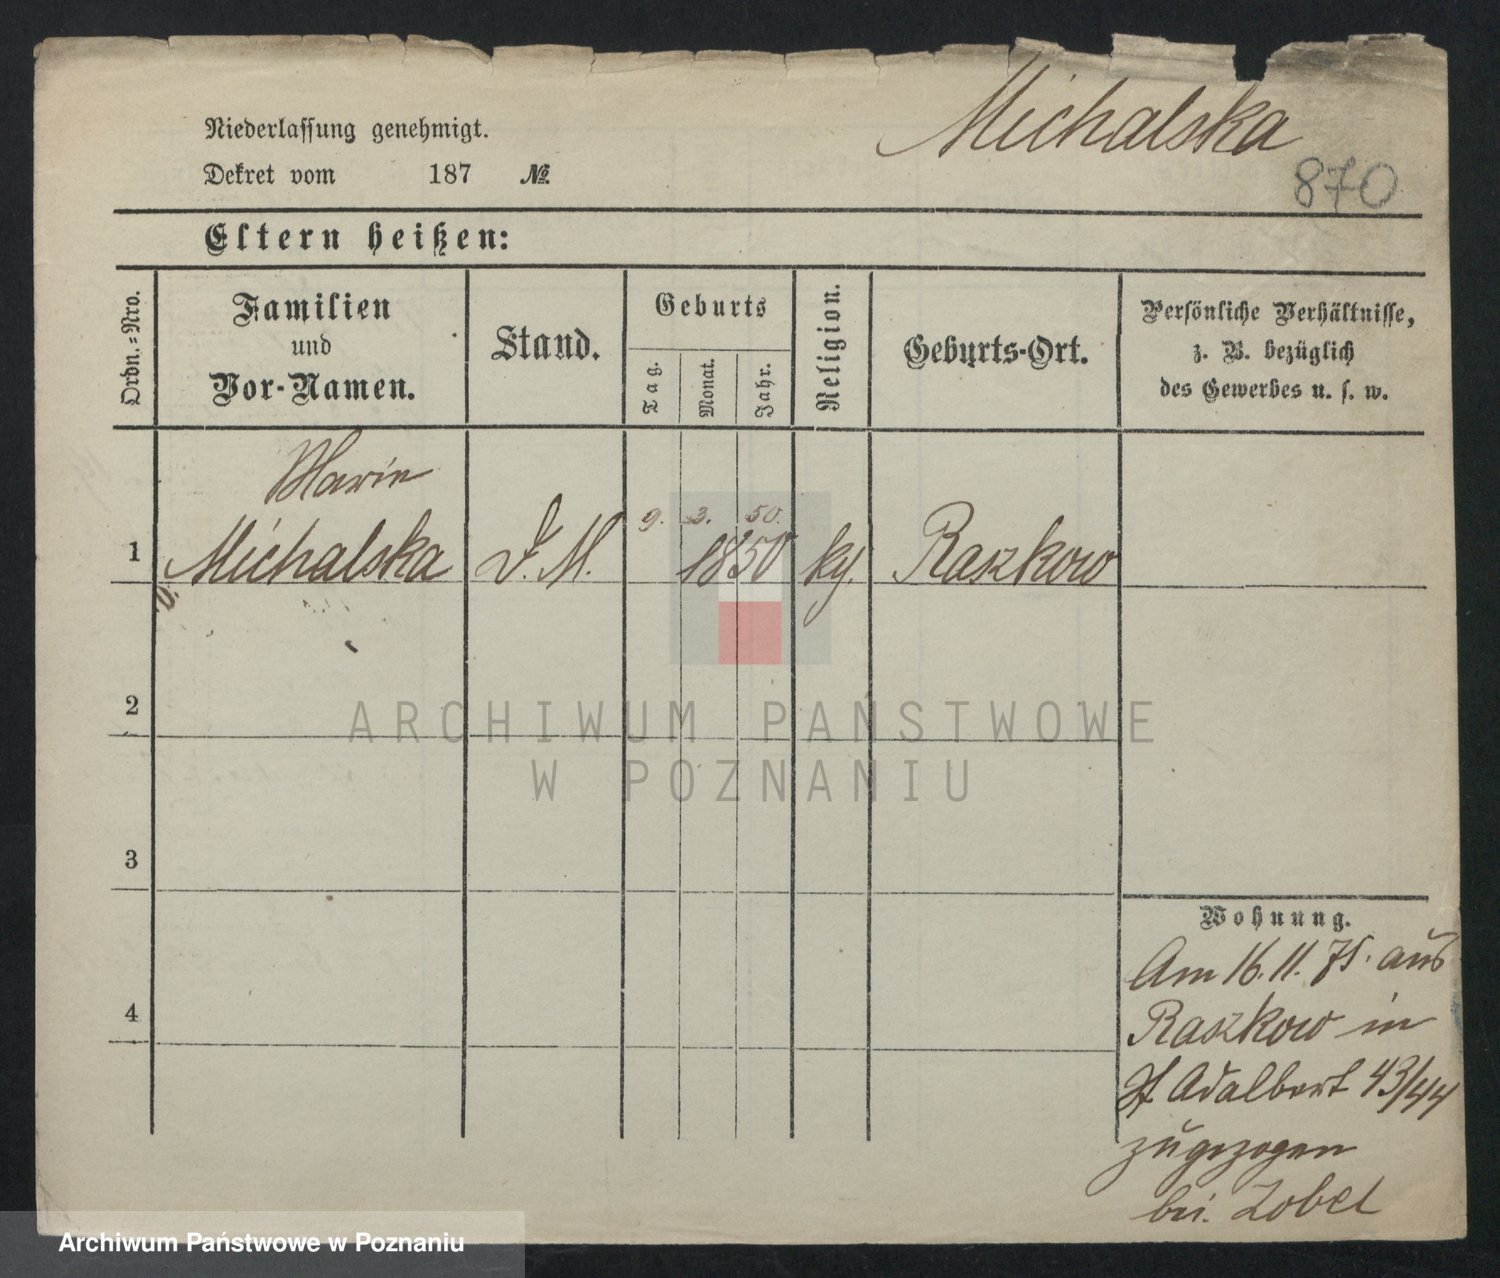 Michalska
Niederlassung genehmigt.
870
Dekret vom 187 №
Eltern heißen:
Ordn.-Nro.
Familien
und
Vor-Namen.
Stand.
Geburts
Tag.
Monat.
Jahr.
Religion.
Geburts-Ort.
Persönliche Verhältnisse,
z. B. bezüglich
des Gewerbes u. s. w.
Marie
9. 3. 50.
1 Michalska D. M. 1850 kg. Raszkow
2
ARCHIWUM PAŃSTWOWE
W POZNANIU
3
4
Wohnung.
Am 16.11.75. aus
Raszkow in
St Adalbert 43/44
zugezogen
bei. Zobel
Archiwum Państwowe w Poznaniu